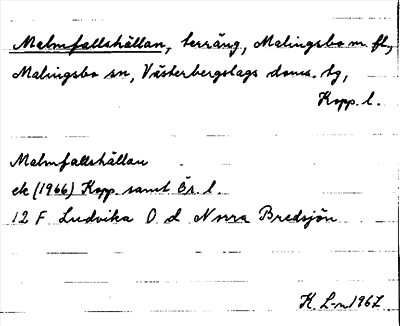 Malmfallshällan, terräng, Malingsbo m. fl.,
Malingsbo sn, Västerbergslags doms. tg,
Kopp. l.
Malmfallshällan
ek (1966) Kopp. samt Ör. l.
12 F Ludvika O d Norra Bredsjön
K. L-m 1967